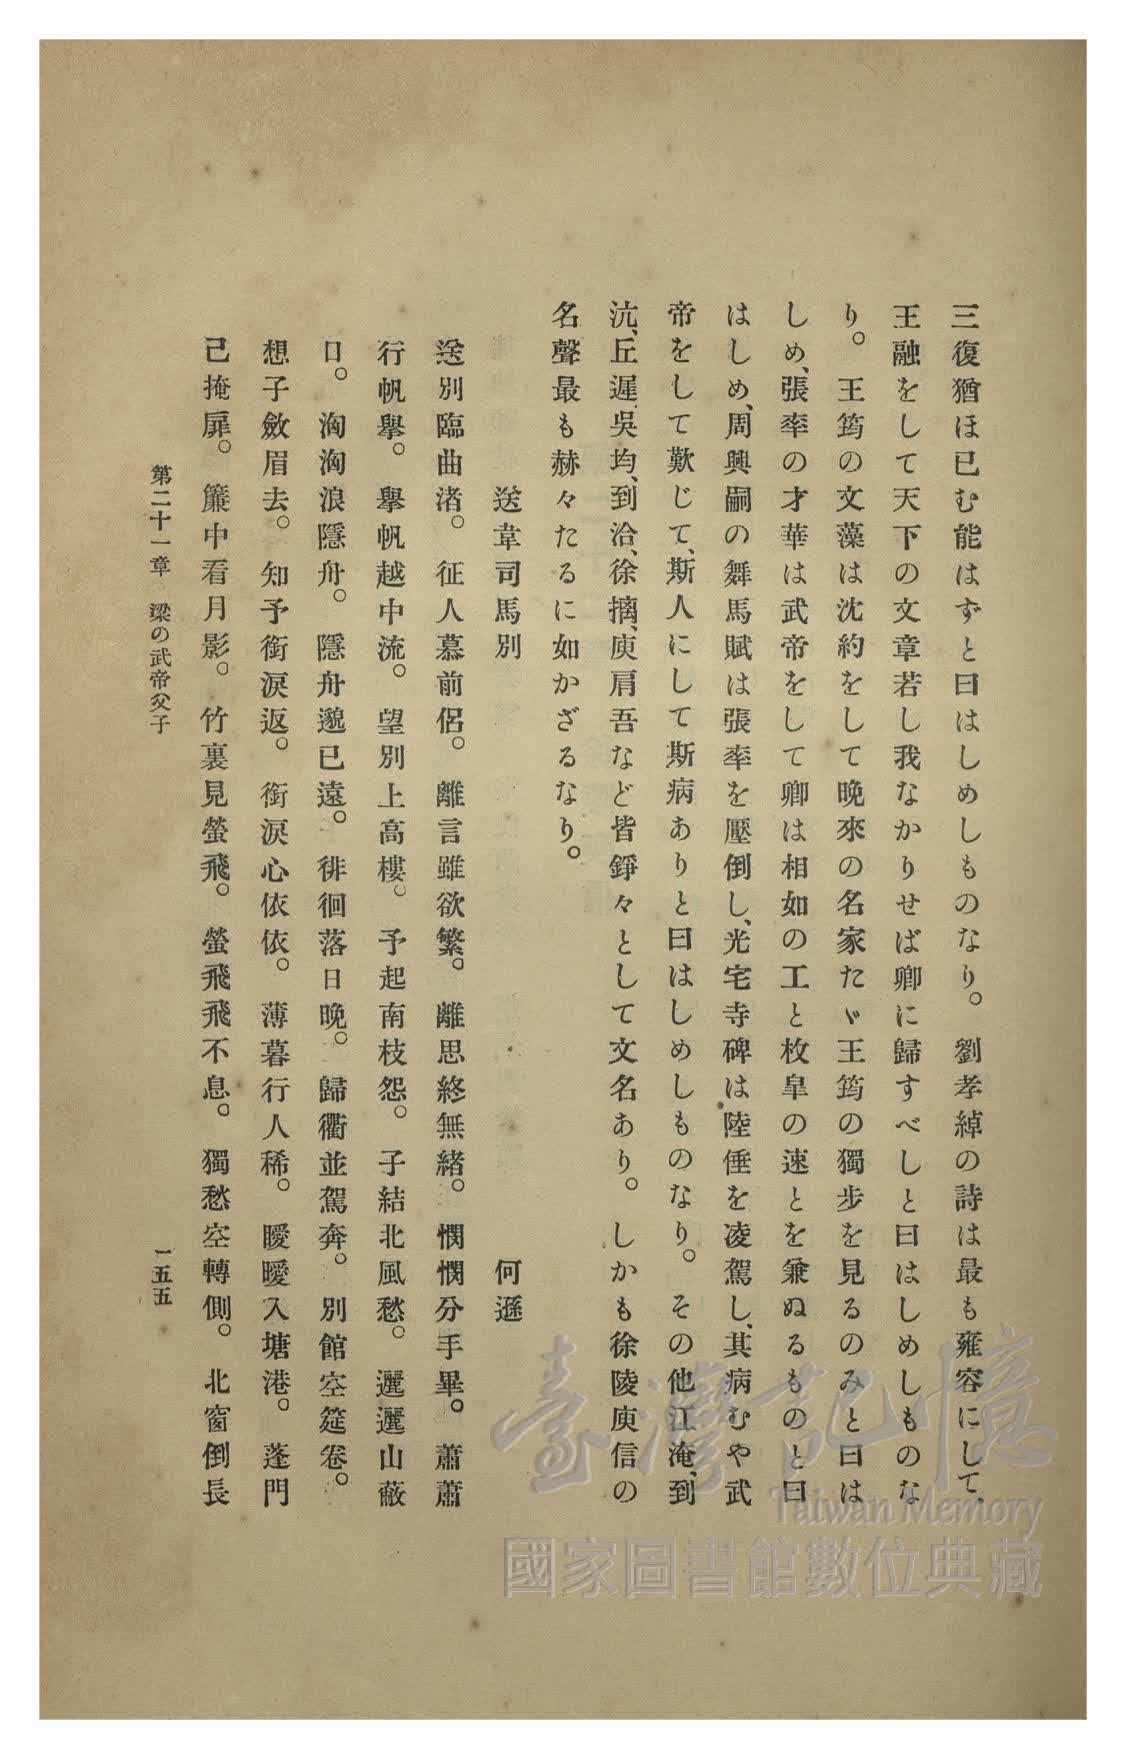 三復猶ほ已む能はずと曰はしめしものなり。劉孝綽の詩は最も雍容にして、
王融をして天下の文章若し我なかりせば卿に歸すべしと曰はしめしものな
り。王筠の文藻は沈約をして晩來の名家たゞ王筠の獨步を見るのみと曰は
しめ、張率の才華は武帝をして卿は相如の工と枚皐の速とを兼ぬるものと曰
はしめ、周興嗣の舞馬賦は張率を壓倒し、光宅寺碑は陸倕を凌駕し、其病むや武
帝をして歎じて、斯人にして斯病ありと曰はしめしものなり。その他江淹、到
沆、丘遲、吳均、到洽、徐摛、庾肩吾など皆錚々として文名あり。しかも徐陵庾信の
名聲最も赫々たるに如かざるなり。
送韋司馬別 何遜
送別臨曲渚。征人慕前侶。離言雖欲繁。離思終無緒。憫憫分手畢。蕭蕭
行帆擧。擧帆越中流。望別上高樓。予起南枝怨。子結北風愁。邐邐山蔽
日。洶洶浪隱舟。隱舟邈已遠。徘徊落日晩。歸衢並駕奔。別館空筵卷。
想子斂眉去。知予銜淚返。銜淚心依依。薄暮行人稀。曖曖入塘港。蓬門
己掩扉。簾中看月影。竹裏見螢飛。螢飛飛不息。獨愁空轉側。北窗倒長
第二十一章 梁の武帝父子 一五五
臺灣記憶
Taiwan Memory
國家圖書館數位典藏